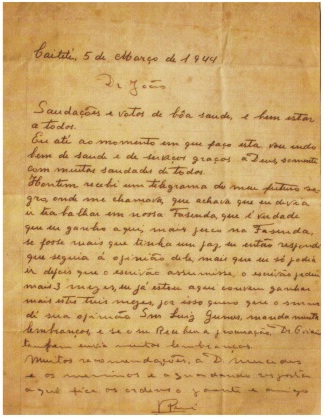 Caiteté, 5 de Março de 1944
Dr João
Saudações e votos de bôa saude, e bem estar
a todos.
Eu até ao momento em que faço esta vou indo
bem de saude e de serviços graças a Deus, somente
com muitas saudades de todos.
Hontem recebi um telegrama do meu futuro so-
gro, onde me chamava, que achava que eu devia
ir trabalhar em nossa Fasenda, que é verdade
que eu ganho aqui, mais perco na Fasenda,
se fosse mais que tinha um faz, eu então respondi
que seguia a opinião dele, mais que eu só podia
ir depois que o escrivão assumisse, o escrivão pediu
mais 3 mezes, eu já estou aqui convem ganhar
mais estes tres mezes, por isso quero que o snr me
dê sua opinião Snr Luiz manda muita
lembrança, e se o snr Recebeu a procuração, Dr
tambem envia muitas lembranças.
Muitos recomendações, a D.
e os meninos e aguardando resposta
aqui fica as ordens o parente e amigo